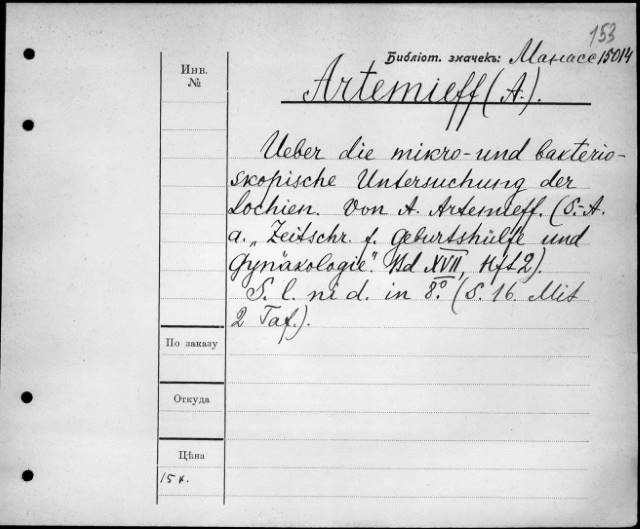 153
Библіот. значекъ: Манасс 15014
Инв.
№
Artemieff (A.).
Ueber die mikro- und bakterio-
skopische Untersuchung der
Lochien. Von A. Artemieff. (S.-A.
a. „Zeitschr. f. Geburtshülfe und
Gynäkologie". Bd XVII, Hft 2).
S. l. ni d. in 8.° (S. 16. Mit
2 Taf.).
По заказу
Откуда
Цѣна
15 к.